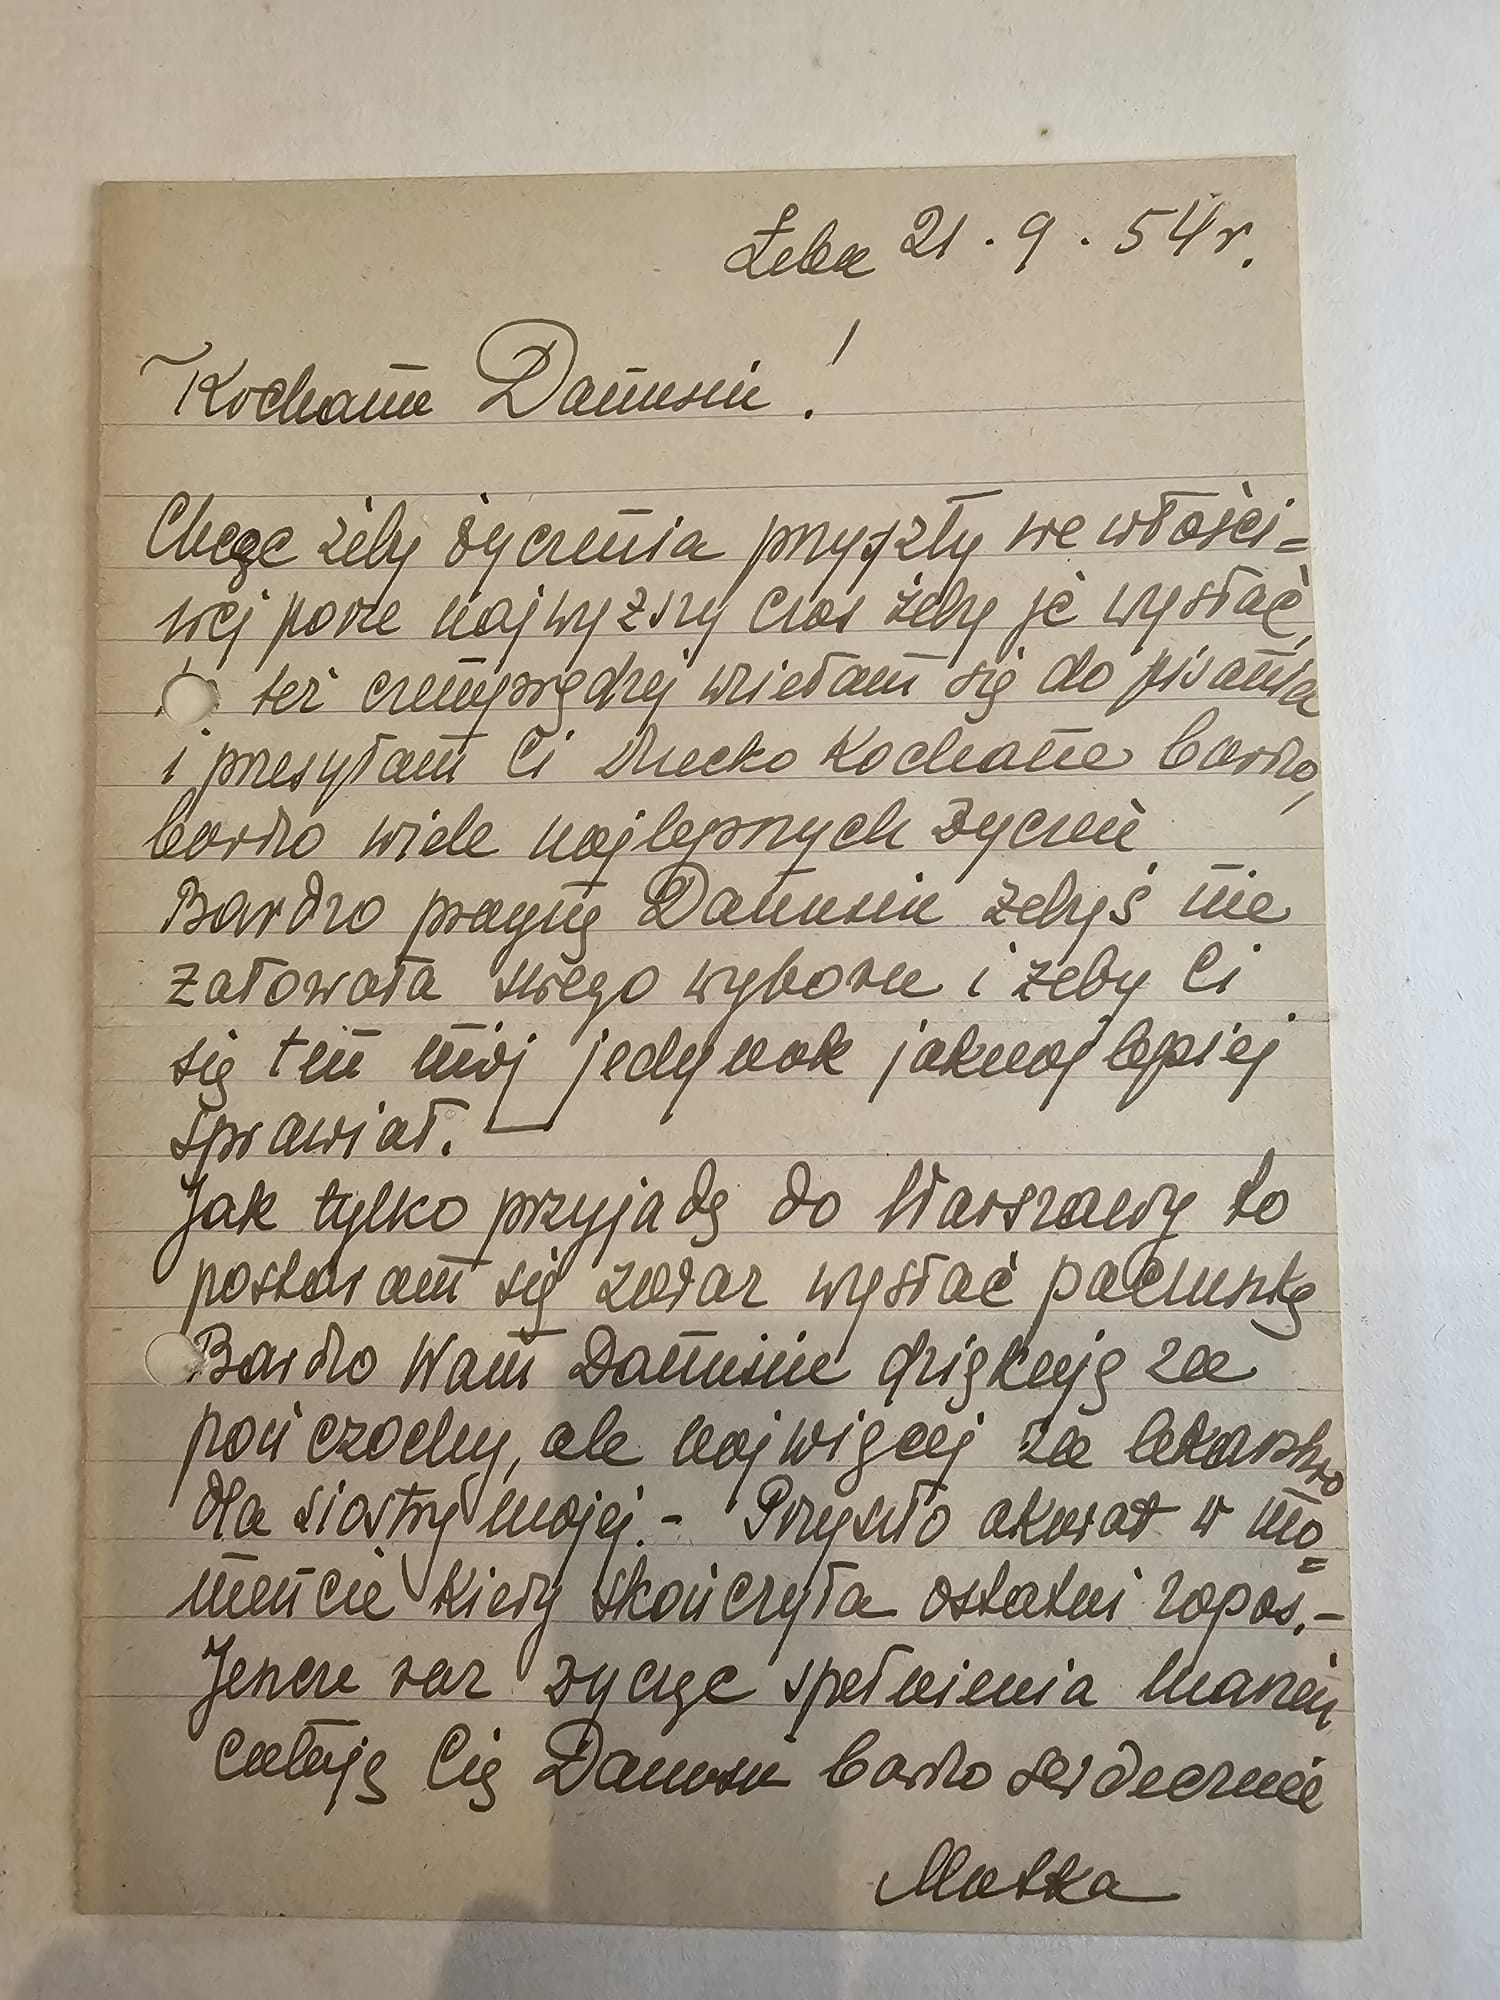 Łeba 21 . 9 . 54 r.
Kochana Danusiu !
Chcąc żeby życzenia przyszły we właści=
wej porze najwyższy czas żeby je wysłać,
też czemprędzej wzięłam się do pisania
i przesyłam Ci Dziecko Kochane bardzo,
bardzo wiele najlepszych życzeń
Bardzo pragnę Danusiu żebyś nie
żałowała swego wyboru i żeby Ci
się ten mój jedynak jaknajlepiej
sprawiał.
Jak tylko przyjadę do Warszawy to
postaram się zaraz wysłać paczuszkę
Bardzo Wam Danusiu dziękuję za
pończochy, ale najwięcej za lekarstwo
dla siostry mojej. - Przyszło akurat w mo=
mencie kiedy skończyła ostatni zapas. -
Jeszcze raz życząc spełnienia marzeń
całuję Cię Danusiu bardzo serdecznie
Matka